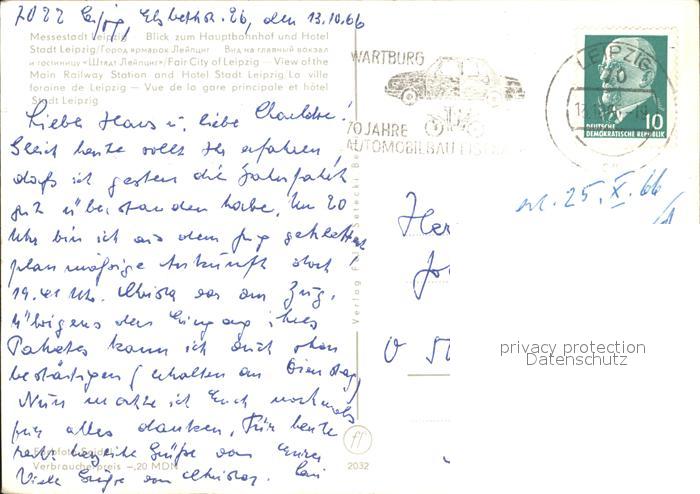 7022 Leipzig, Elsbethstr. 26, den 13.10.66
Messestadt Leipzig Blick zum Hauptbahnhof und Hotel
Stadt Leipzig/Город ярмарок Лейпциг Вид на главный вокзал
и гостиницу «Штадт Лейпциг»/Fair City of Leipzig — View of the
Main Railway Station and Hotel Stadt Leipzig/La ville
foraine de Leipzig — Vue de la gare principale et hôtel
Stadt Leipzig
Lieber Hans u. liebe Charlotte!
Gleich heute sollt Ihr erfahren,
daß ich gestern die Fahrt
gut überstanden habe. Um 20
Uhr bin ich aus dem Zug geklettert
planmäßige Ankunft doch
19.41 Uhr. Christa war am Zug.
Übrigens den Eingang ihres
Paketes kann ich auch schon
bestätigen (erhalten am Dienstag)
Nun möchte ich Euch nochmals
für alles danken. Für heute
herzliche Grüße von Eurer
Viele Grüße von Christa.
Verbraucherpreis —,20 MDN
2032
Verlag
WARTBURG
70 JAHRE
AUTOMOBILBAU
LEIPZIG
10
DEUTSCHE
DEMOKRATISCHE REPUBLIK
erl. 25. X. 66
privacy protection
Datenschutz